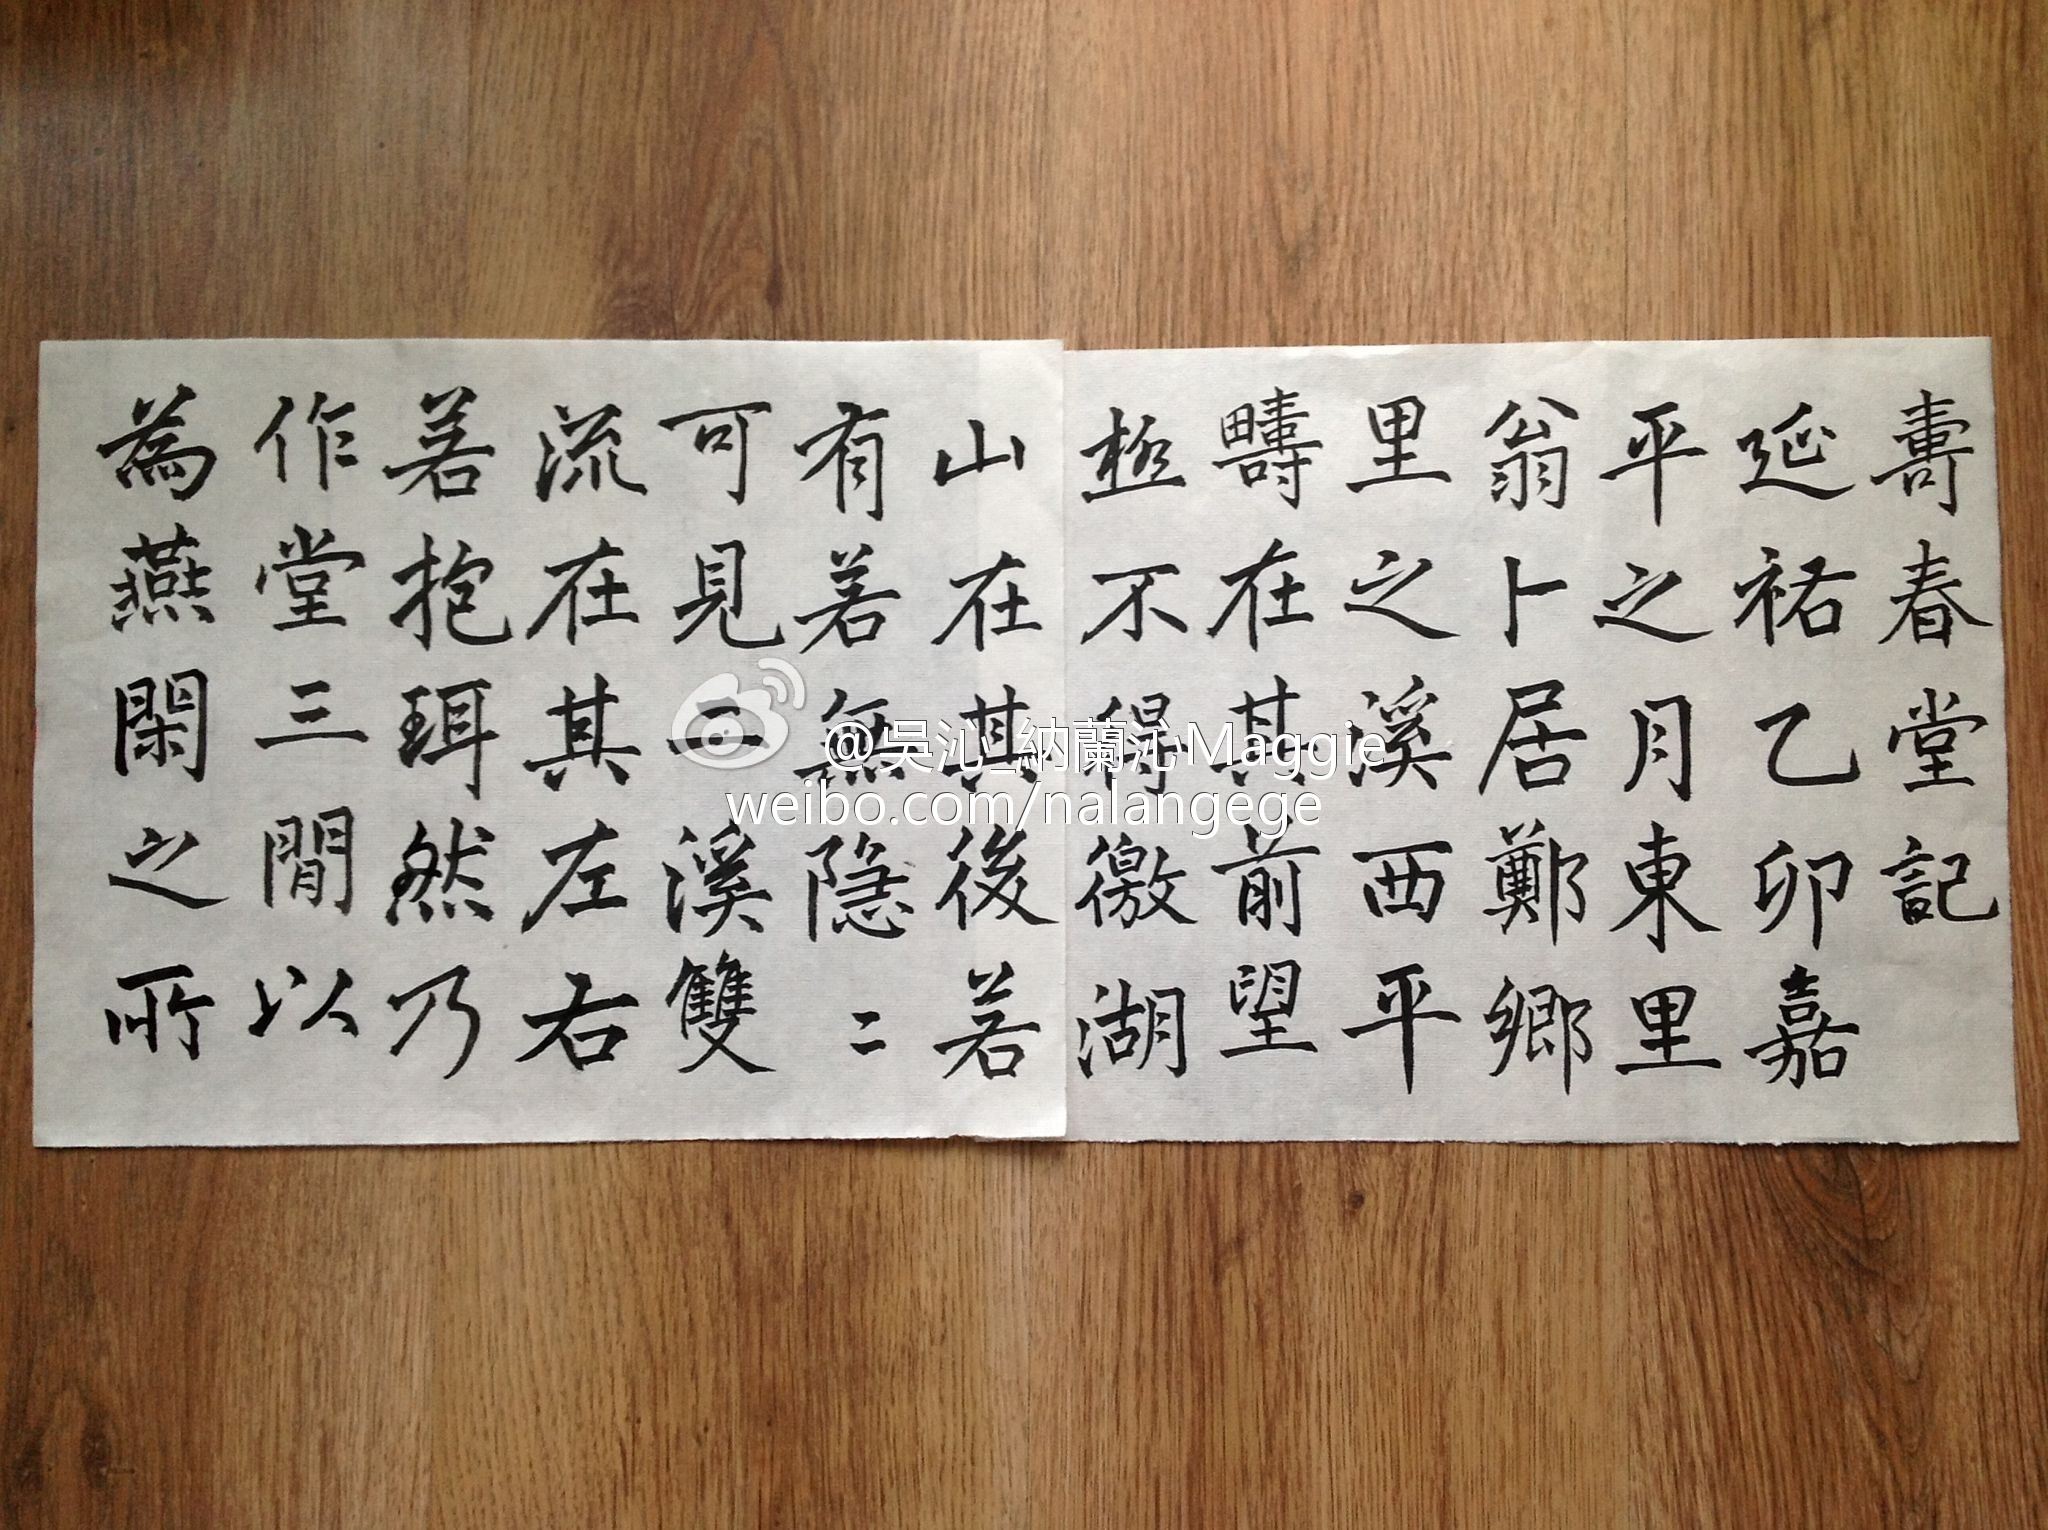 壽春堂記
延祐乙卯嘉
平之月東里
翁卜居鄭鄉
里之溪西平
疇在其前望
極不得徼湖
山在其後若
有若無隐二
可見二溪雙
流在其左右
若抱珥然乃
作堂三閒以
為燕閑之所
@吳沁_納蘭沁Maggie
weibo.com/nalangege